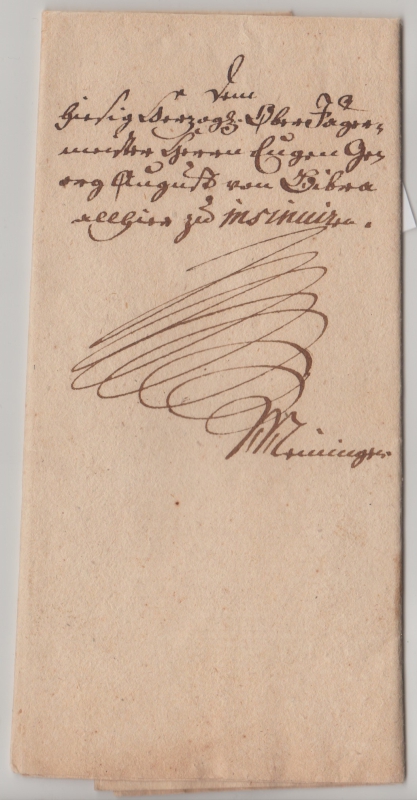 Dem
hiesig Herzogl. Ober Jäger-
meister Herrn Eugen Ge-
org August von Bibra
allhier zu insinuiren.
Meiningen